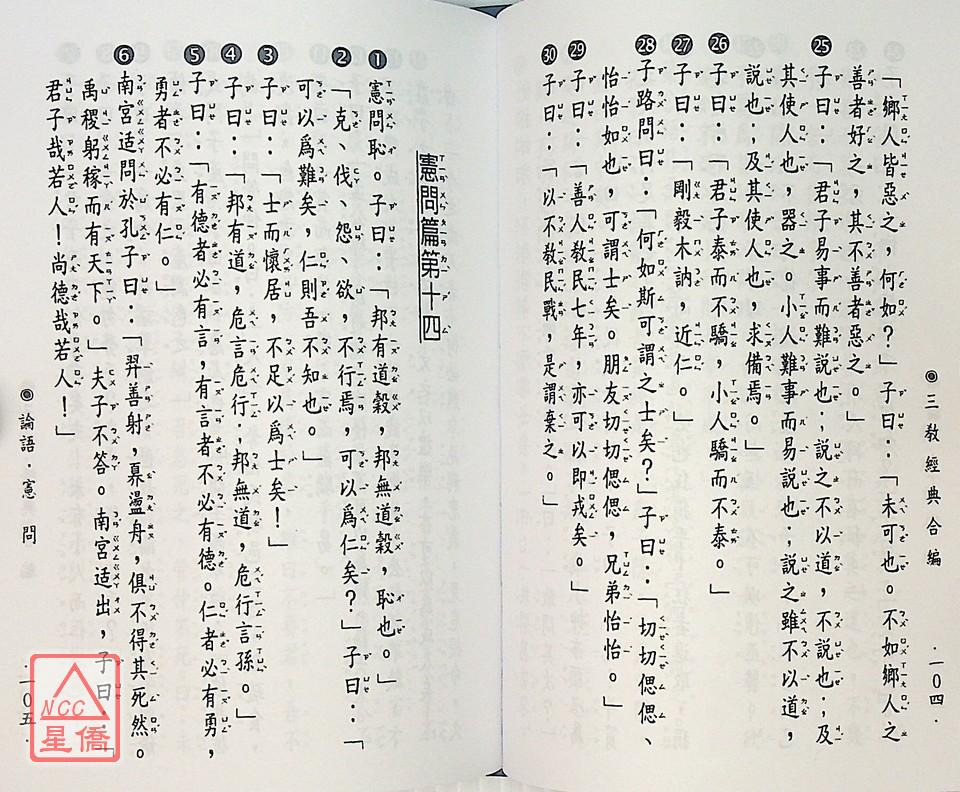 三教經典合編
·一〇四·
「鄉人皆惡之，何如？」子曰：「未可也。不如鄉人之
善者好之，其不善者惡之。」
㉕子曰：「君子易事而難說也；說之不以道，不說也；及
其使人也，器之。小人難事而易說也；說之雖不以道，
說也；及其使人也，求備焉。」
㉖子曰：「君子泰而不驕，小人驕而不泰。」
㉗子曰：「剛毅木訥，近仁。」
㉘子路問曰：「何如斯可謂之士矣？」子曰：「切切偲偲、
怡怡如也，可謂士矣。朋友切切偲偲，兄弟怡怡。」
㉙子曰：「善人教民七年，亦可以即戎矣。」
㉚子曰：「以不教民戰，是謂棄之。」
憲問篇第十四
❶憲問恥。子曰：「邦有道穀，邦無道穀，恥也。」
❷「克、伐、怨、欲，不行焉，可以爲仁矣？」子曰：「
可以爲難矣，仁則吾不知也。」
❸子曰：「士而懷居，不足以爲士矣！」
❹子曰：「邦有道，危言危行；邦無道，危行言孫。」
❺子曰：「有德者必有言，有言者不必有德。仁者必有勇，
勇者不必有仁。」
❻南宮适問於孔子曰：「羿善射，奡盪舟，俱不得其死然。
禹稷躬稼而有天下。」夫子不答。南宮适出，子曰：「
君子哉若人！尚德哉若人！」
論語·憲問
·一〇五·
NCC
星僑